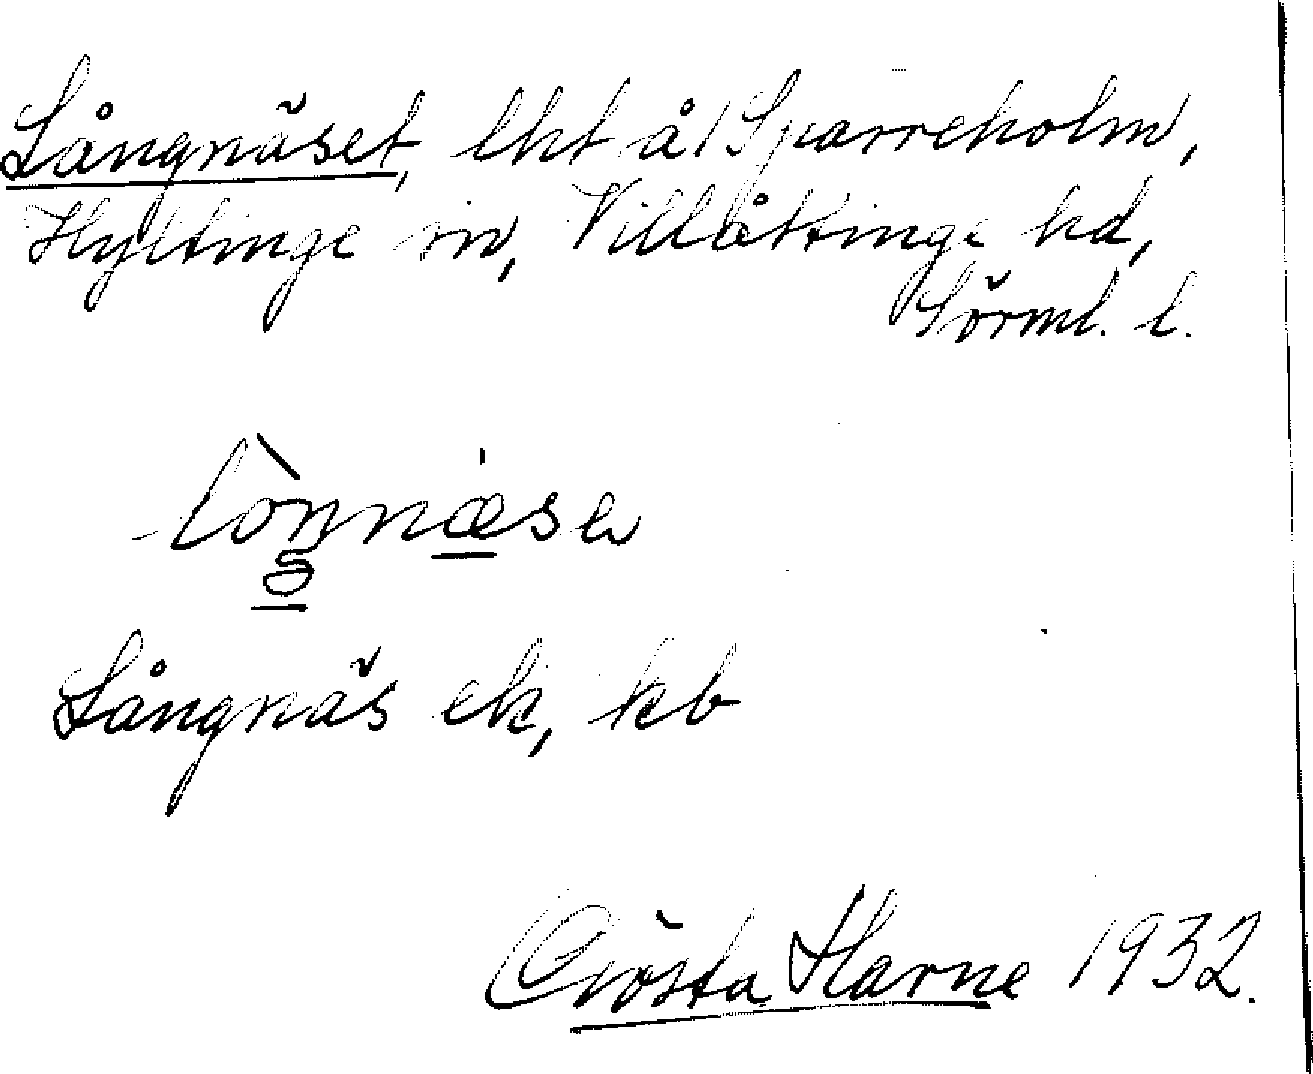 Långnäset, lht å Sparreholm,
Hyltinge sn, Villåttinge hd,
Sörml. l.
Långnäs ek, kb
Gösta Harne 1932.